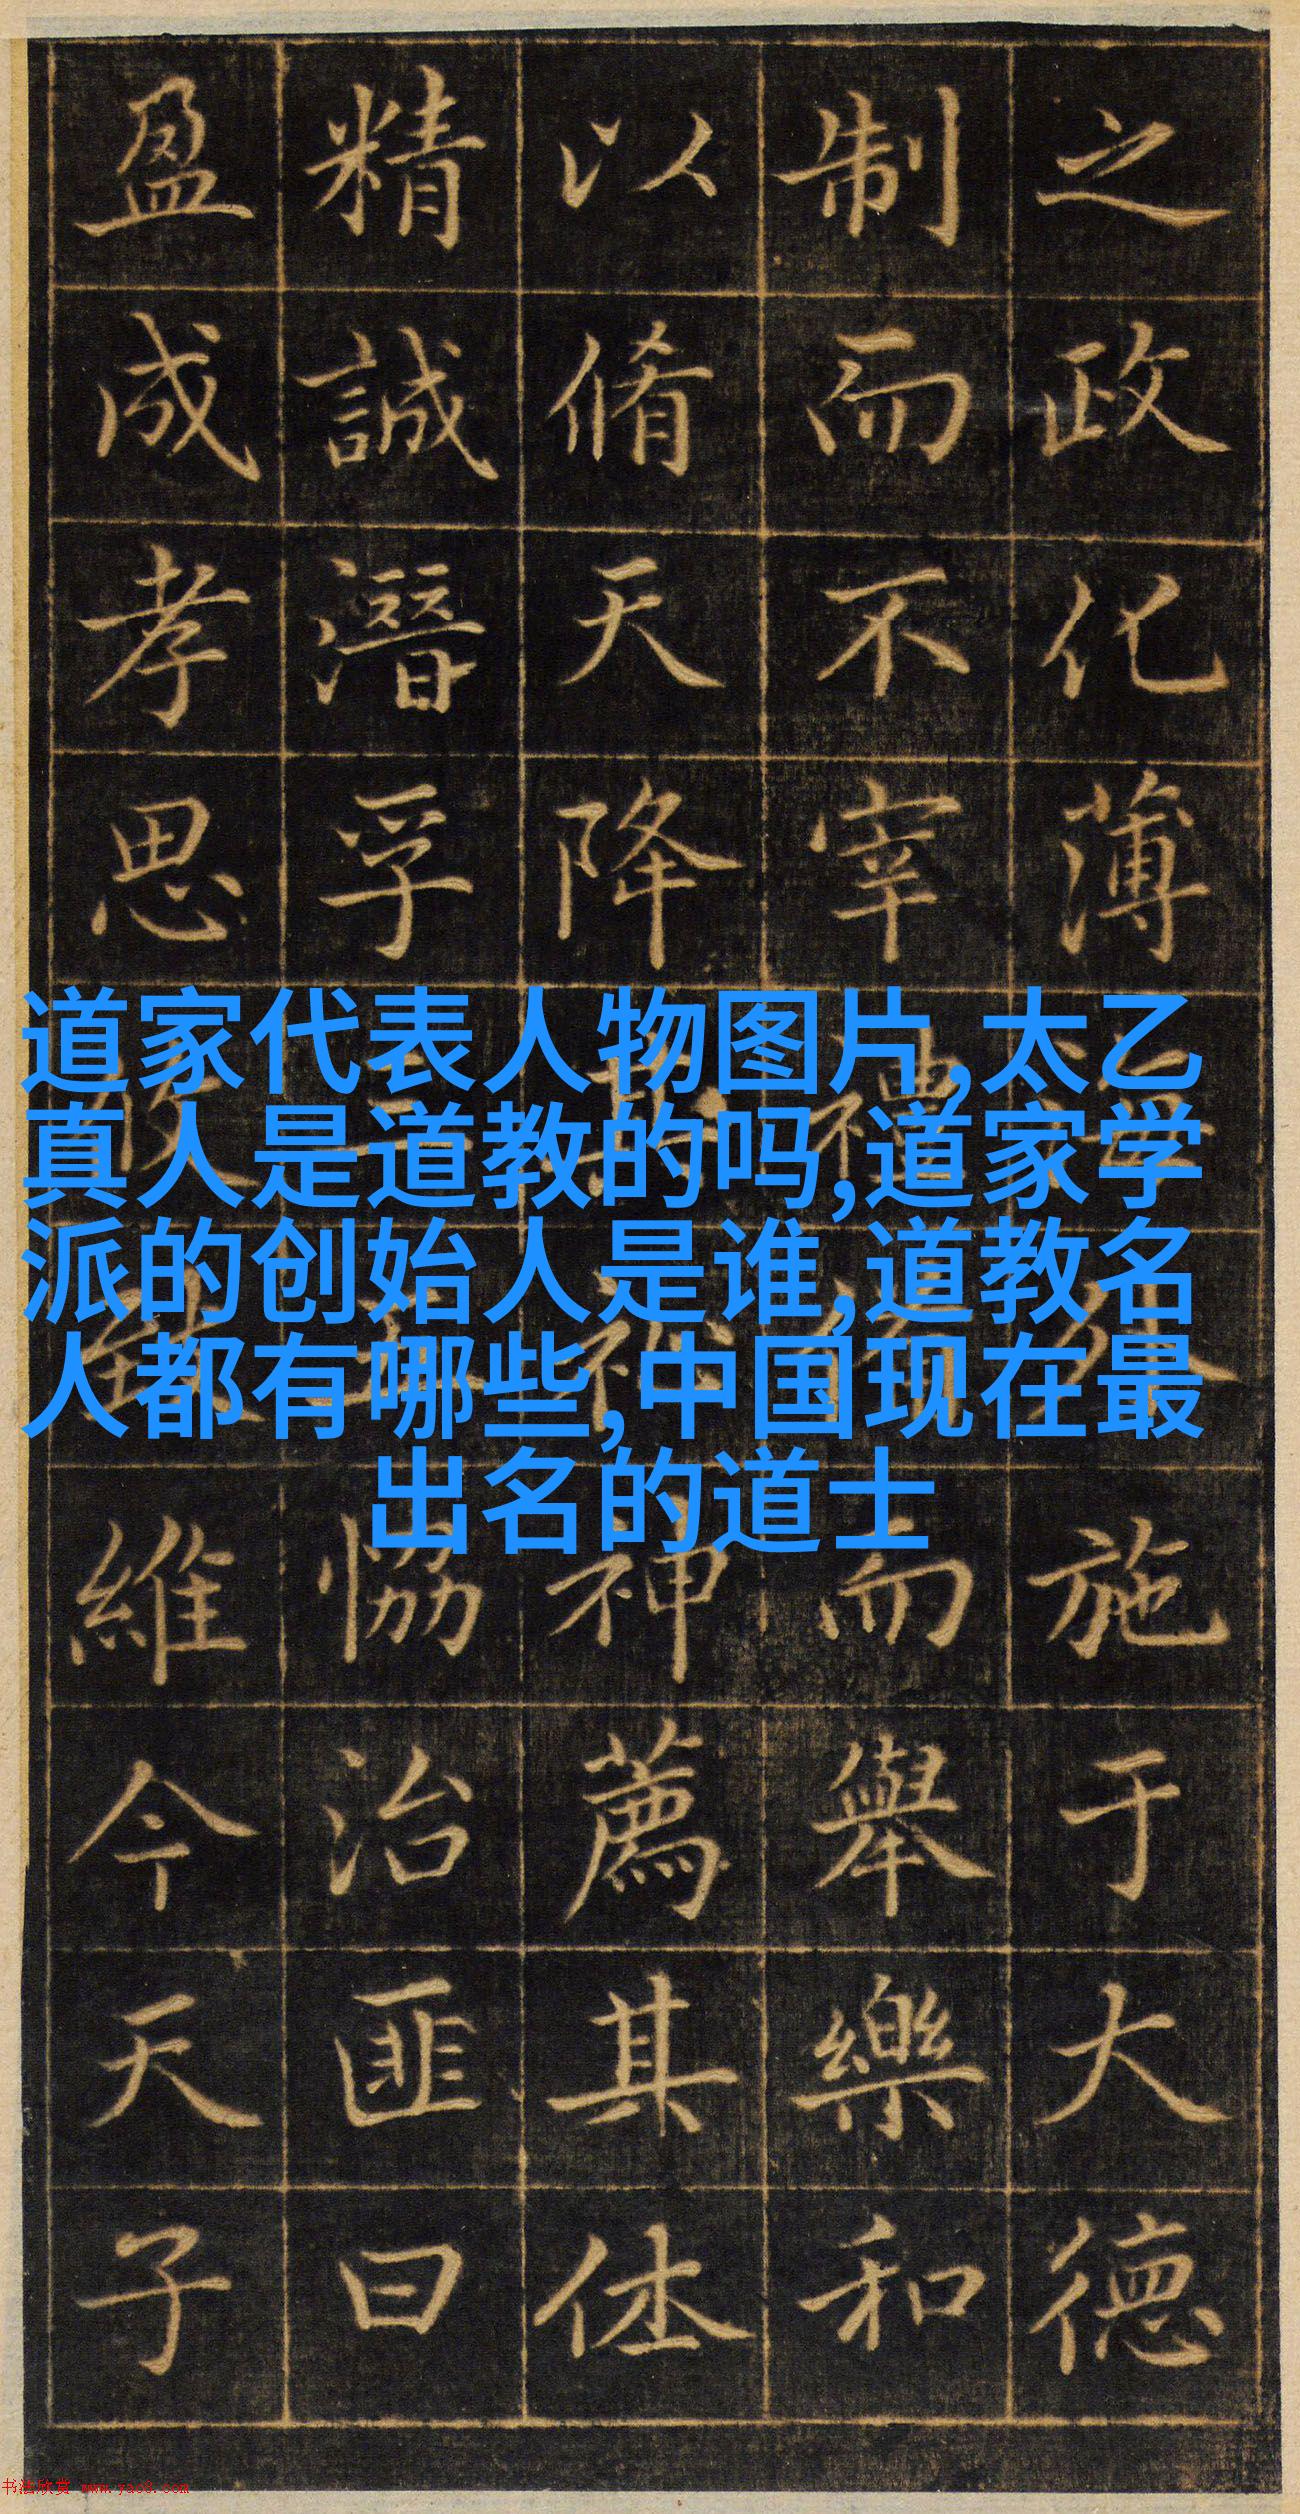 之政化薄施于大德
制而不宰而舉樂和
以脩天降神薦其休
精誠潛孚恊治匪曰
盈成孝思維今天子
道家代表人物图片,太乙
真人是道教的吗,道家学
派的创始人是谁,道教名
人都有哪些,中国现在最
出名的道士
书法欣赏 www.yac8.com